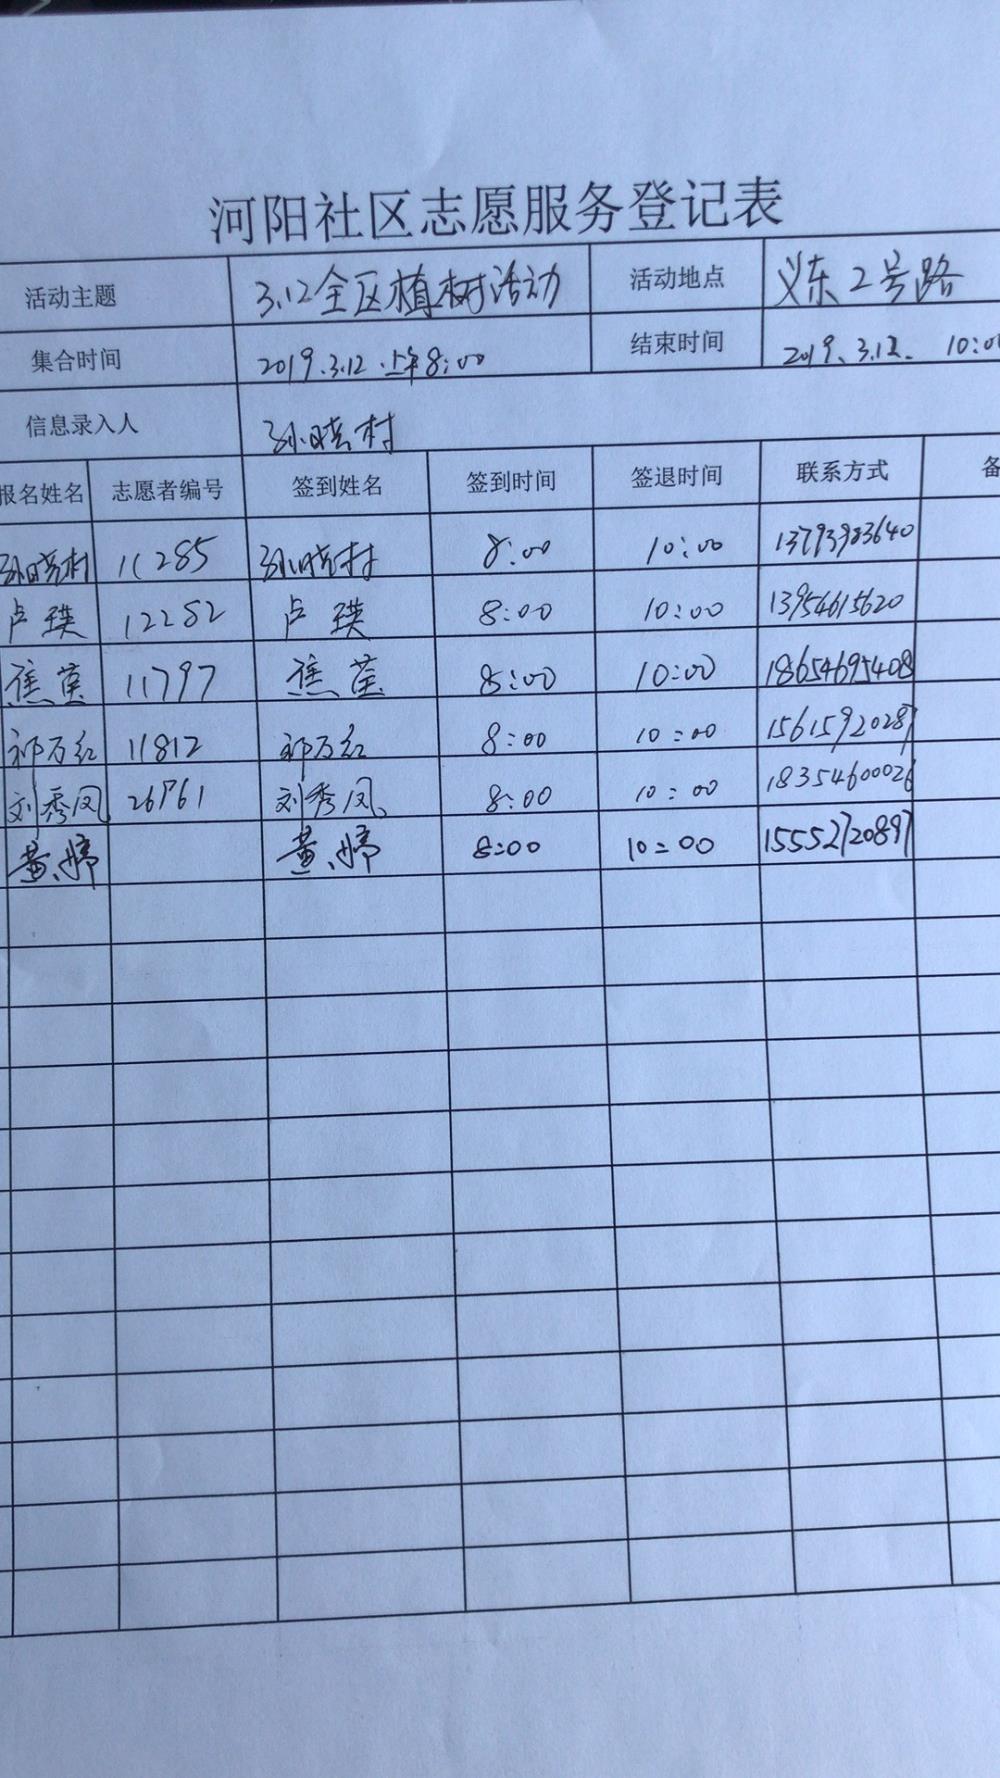 河阳社区志愿服务登记表
活动主题 3.12全区植树活动 活动地点 义东2号路
集合时间 2019.3.12.上午8:00 结束时间 2019.3.12. 10:00
信息录入人 孙晓村
报名姓名 志愿者编号 签到姓名 签到时间 签退时间 联系方式 备
孙晓村 11285 孙晓村 8:00 10:00 13793983640
卢瑛 12282 卢瑛 8:00 10:00 13954615620
11797 8:00 10:00 18654695408
祁万红 11812 祁万红 8:00 10:00 15615920287
刘秀凤 26761 刘秀凤 8:00 10:00 18354600026
黄婷 黄婷 8:00 10:00 15552720897